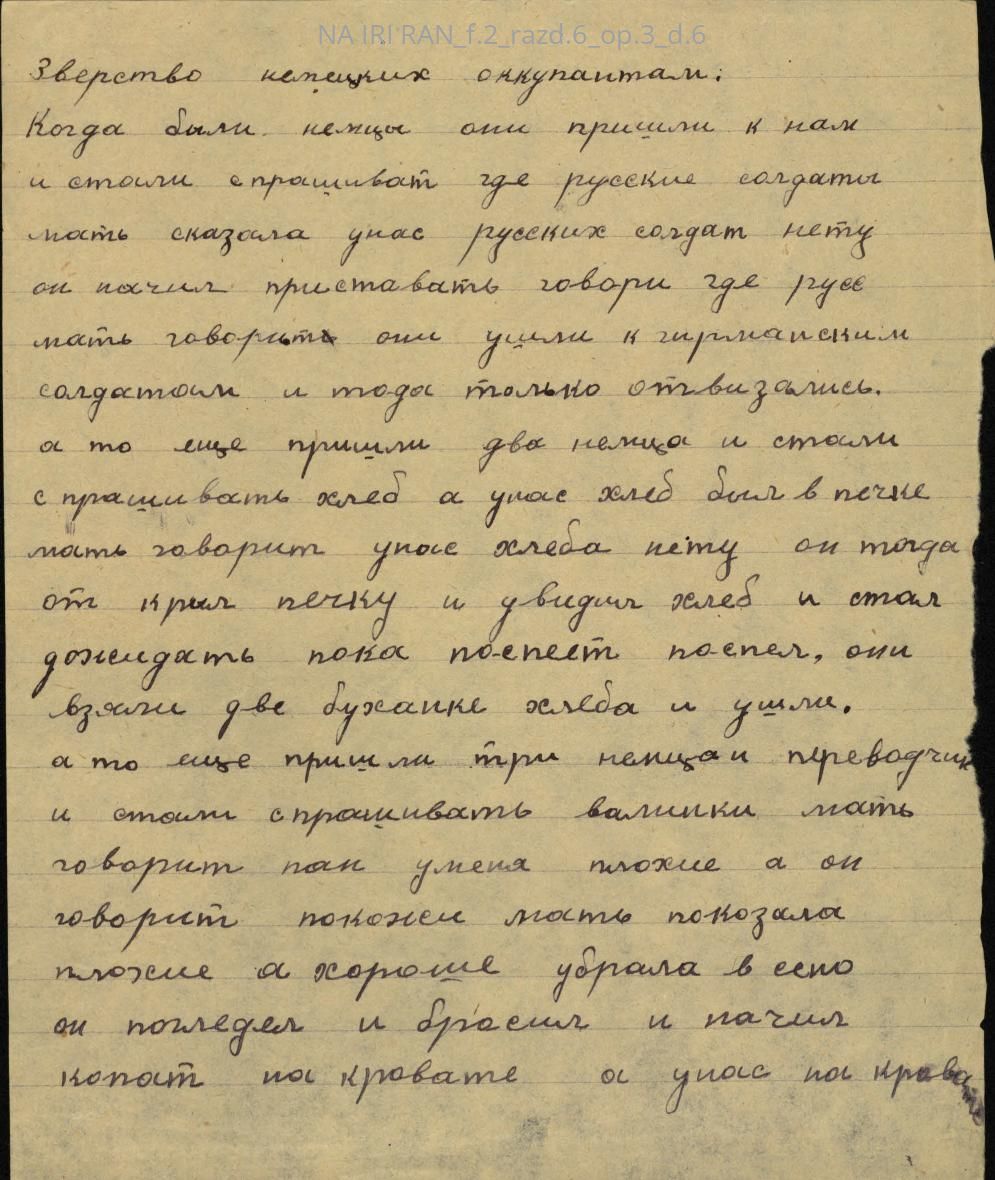 NA IRI RAN_f.2_razd.6_op.3_d.6
Зверство немецких оккупантам.
Когда были немцы они пришли к нам
и стали спрашиват где русские солдаты
мать сказала унас русских солдат нету
он начил приставать говори где русс
мать говорить они ушли к гирманским
солдатам и тода только отвизались.
а то еще пришли два немца и стали
спрашивать хлеб а унас хлеб был в печке
мать говорит унас хлеба нету он тогда
от крыл печку и увидил хлеб и стал
дожидать пока поспеет поспел, они
взяли две буханке хлеба и ушли.
а то еще пришли три немца и переводчик
и стали спрашивать валинки мать
говорит пан уменя плохие а он
говорит покожи мать покозала
плохие а хороше убрала в сено
он погледел и бросил и начил
копат на кровате а унас на кровате